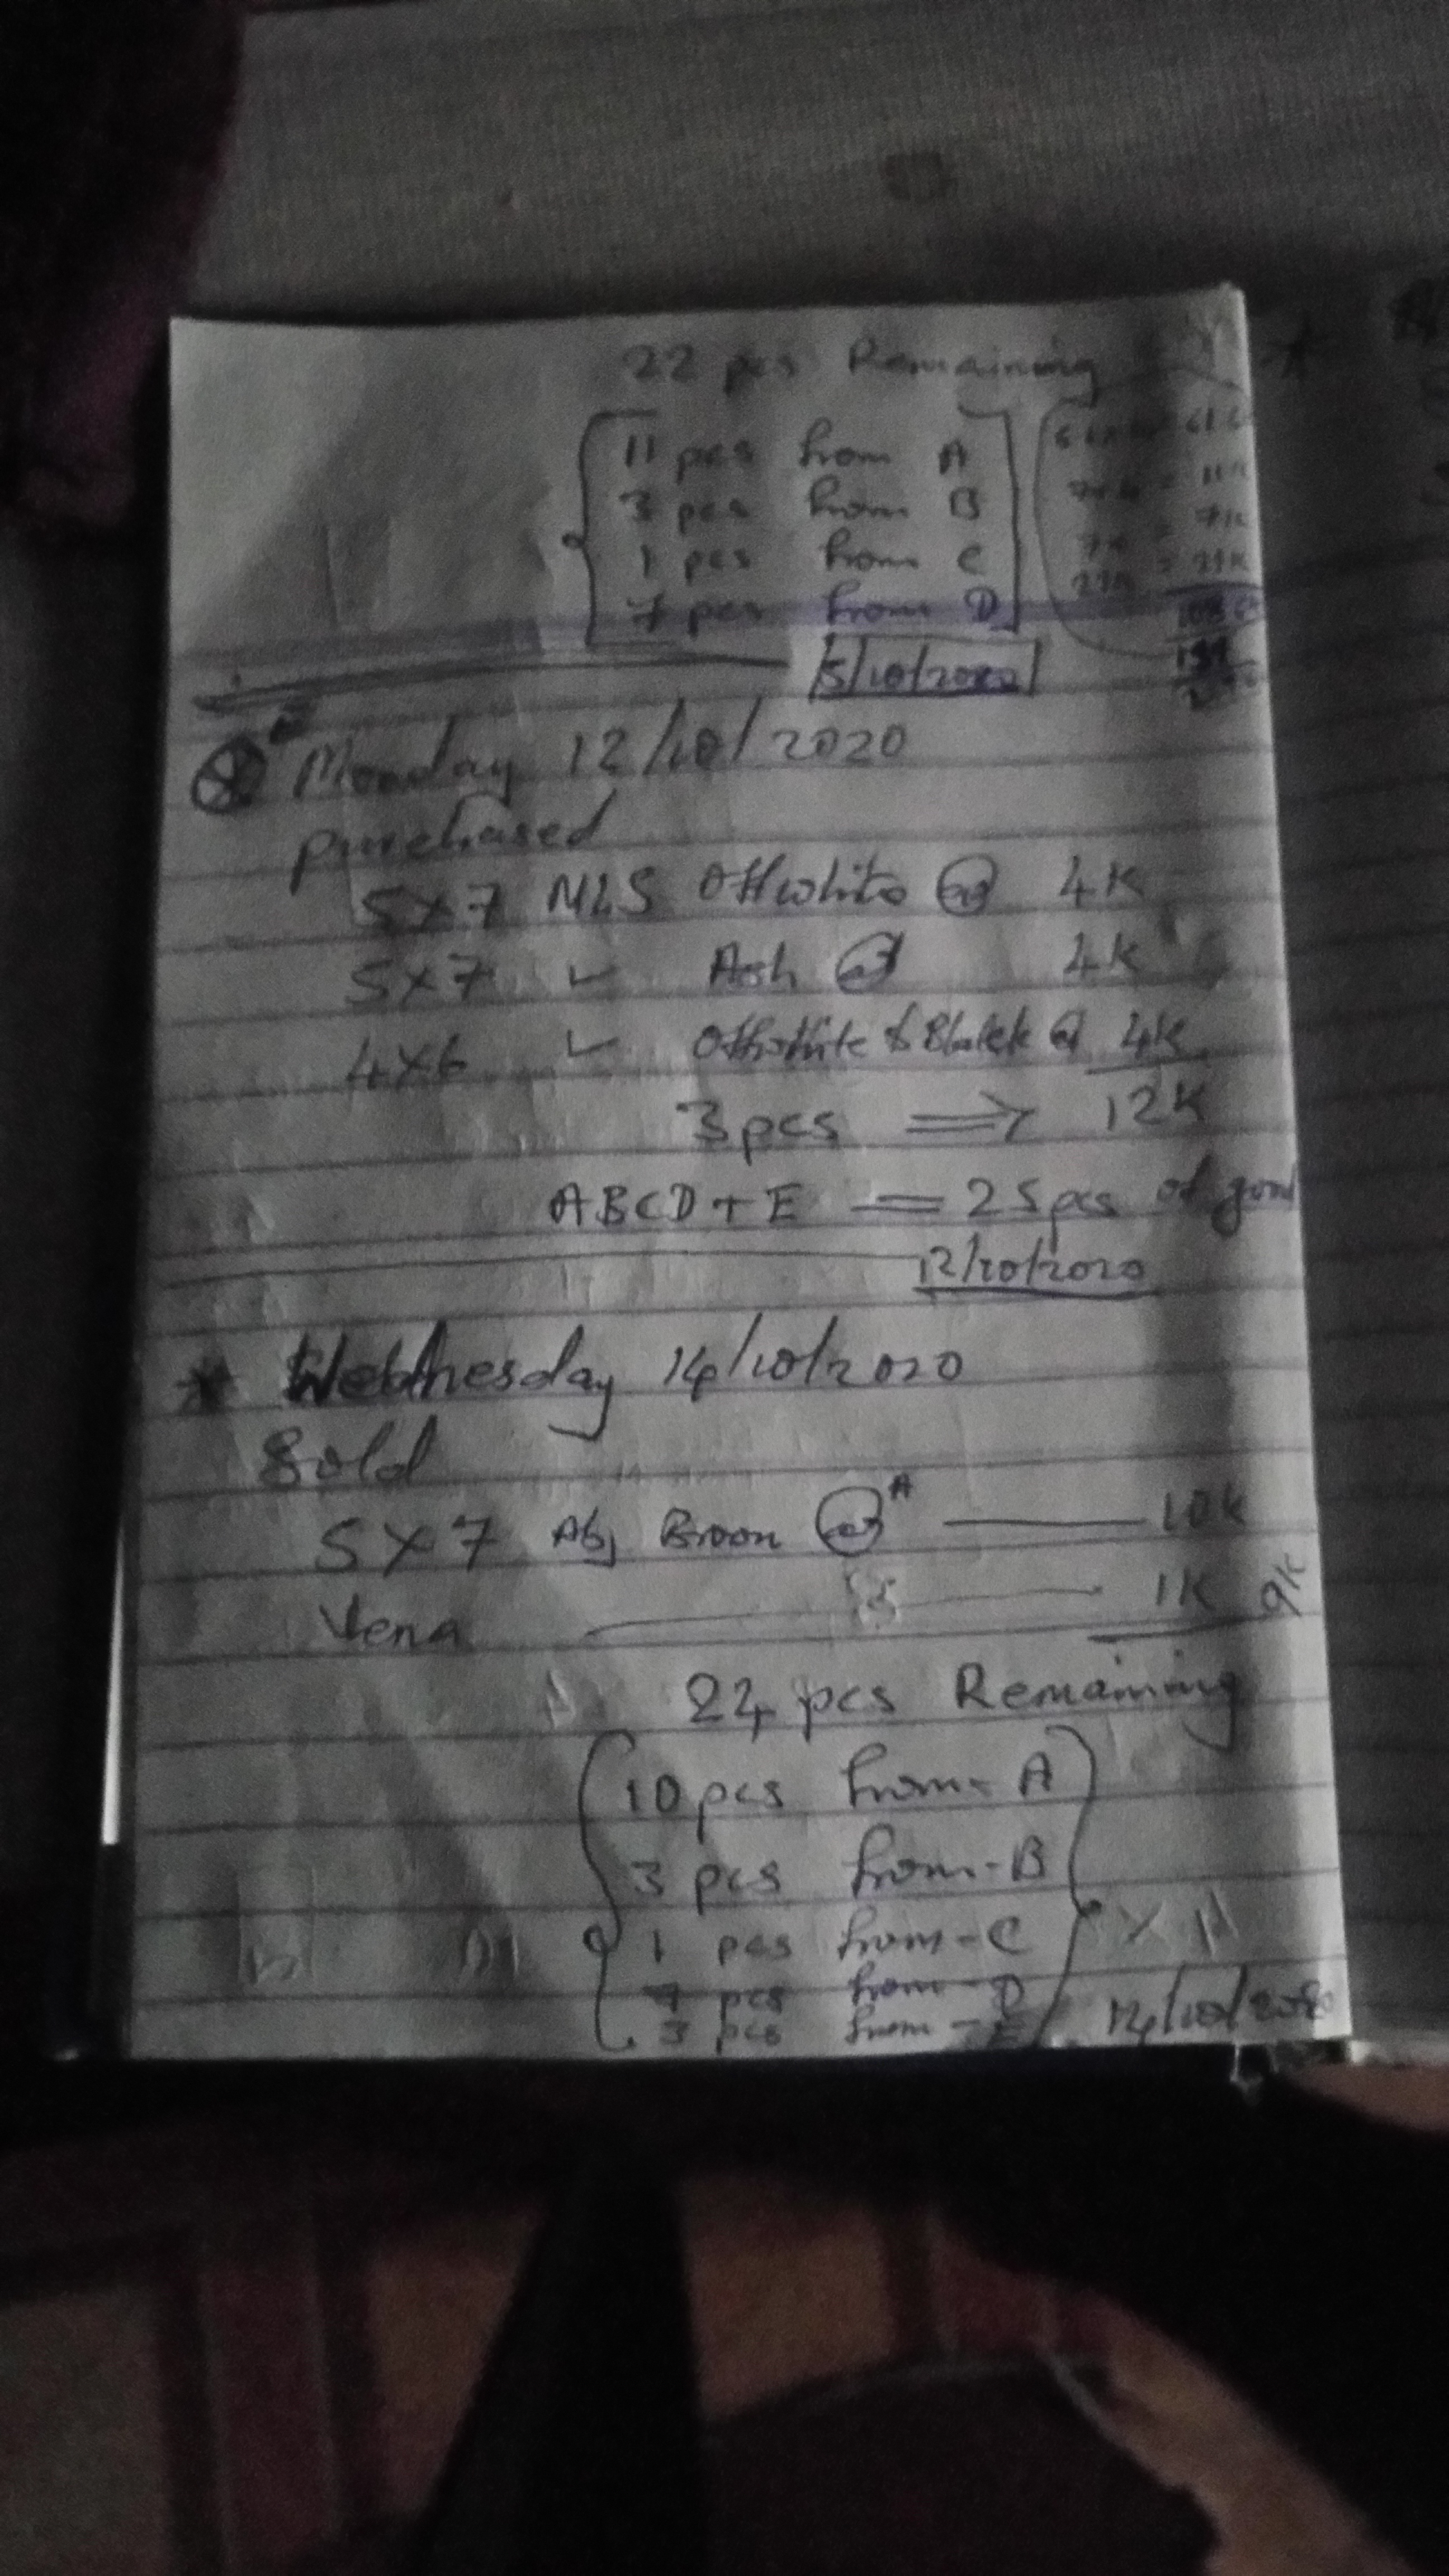 22 pcs Remaining
11 pcs from A
3 pcs from B
1 pcs from C
7 pcs from D
5/10/2020
Monday 12/10/2020
purchased
5X7 MLS Offwhite @ 4K
5X7 ✓ Ash @ 4K
4X6 ✓ Offwhite & Black @ 4K
3pcs ⟹ 12K
ABCD + E = 25pcs of
12/10/2020
* Wednesday 14/10/2020
Sold
5X7 Abj @ A — 10K
— 1K 9K
24 pcs Remaining
10 pcs from - A
3 pcs from - B
1 pcs from - C
7 pcs from - D
3 pcs from - E
14/10/2020